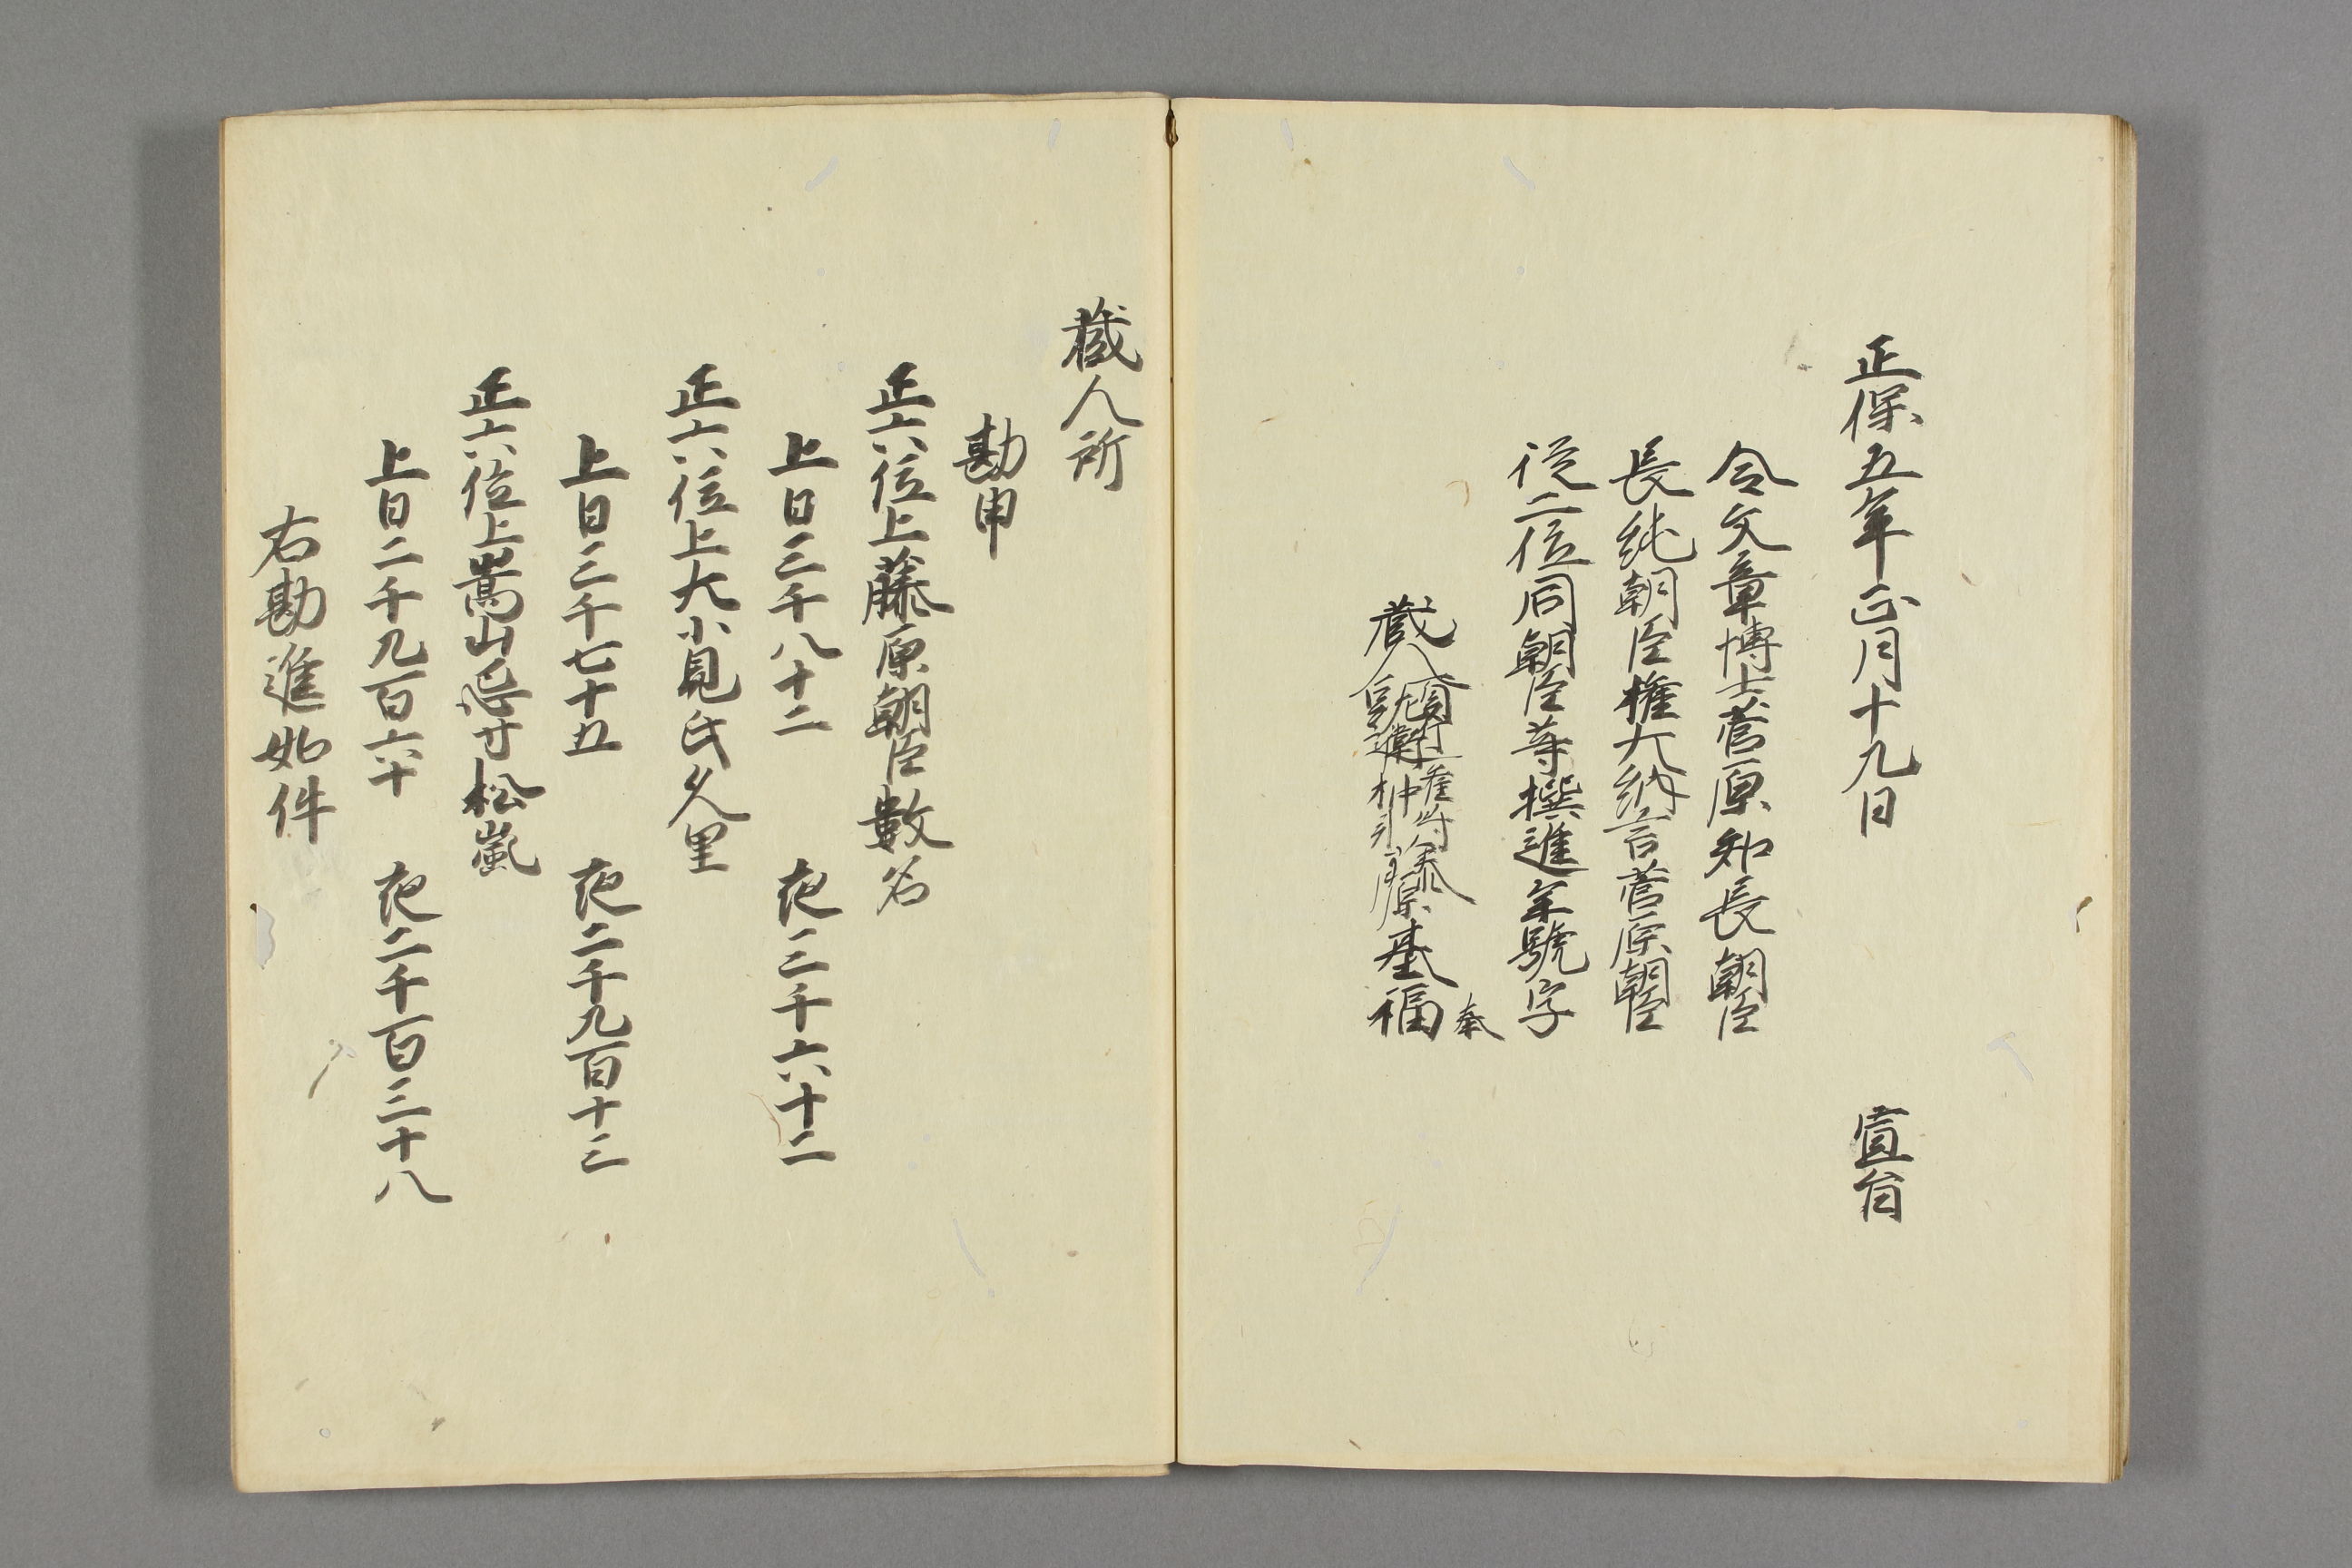 正保五年正月十九日　宣旨
令文章博士菅原知長朝臣
長純朝臣権大納言菅原朝臣
従二位同朝臣等撰進年號字
蔵人頭 藤原基福 奉
蔵人所
勘申
正六位上藤原朝臣數名
上日三千八十二　夜三千六十二
正六位上大小見氏久里
上日三千七十五　夜二千九百十三
正六位上嵩山忌寸松嵐
上日二千九百六十　夜二千百三十八
右勘進如件